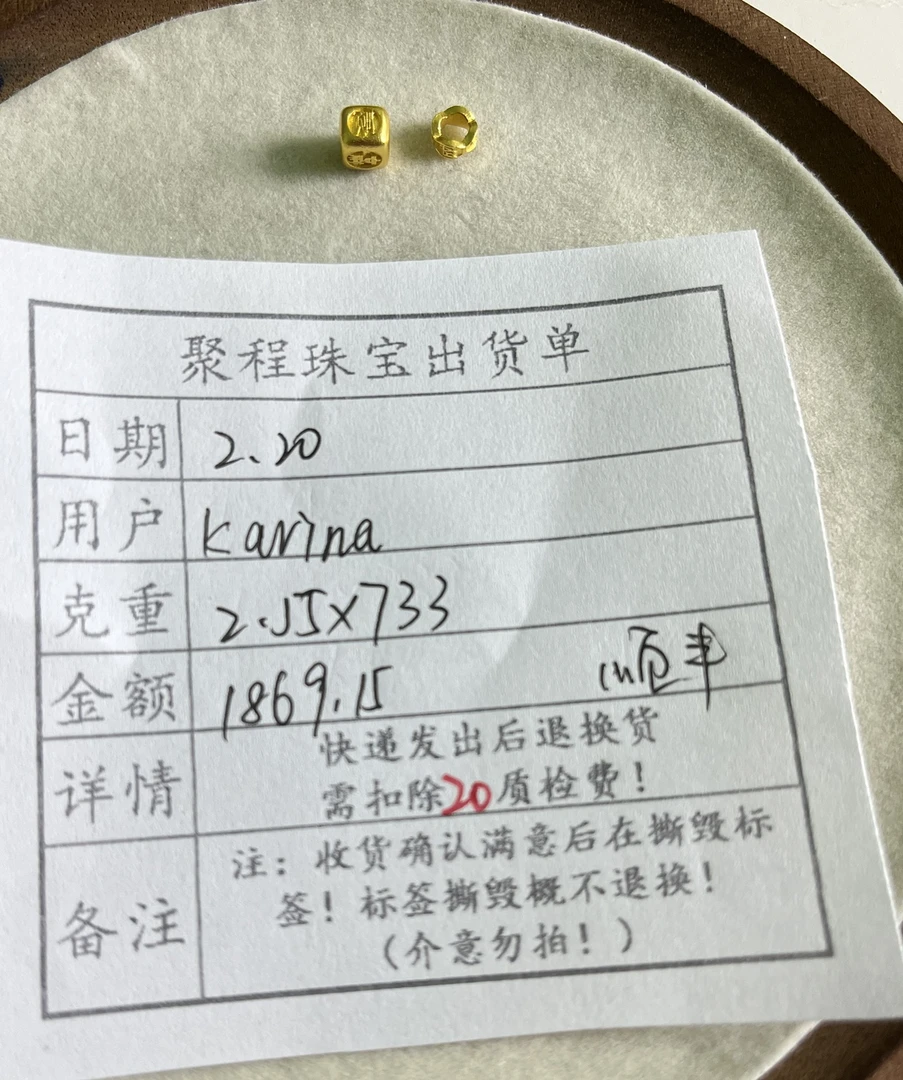 聚程珠宝出货单
日期 2.20
用户 Karina
克重 2.55×733
金额 1869.15 顺丰
详情 快递发出后退换货
需扣除20质检费！
备注 注：收货确认满意后在撕毁标
签！标签撕毁概不退换！
（介意勿拍！）